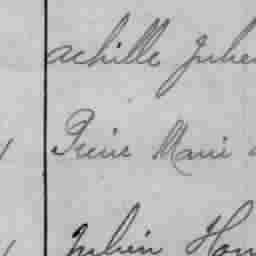 achille Julien
Pierre Marie
Julien Hon